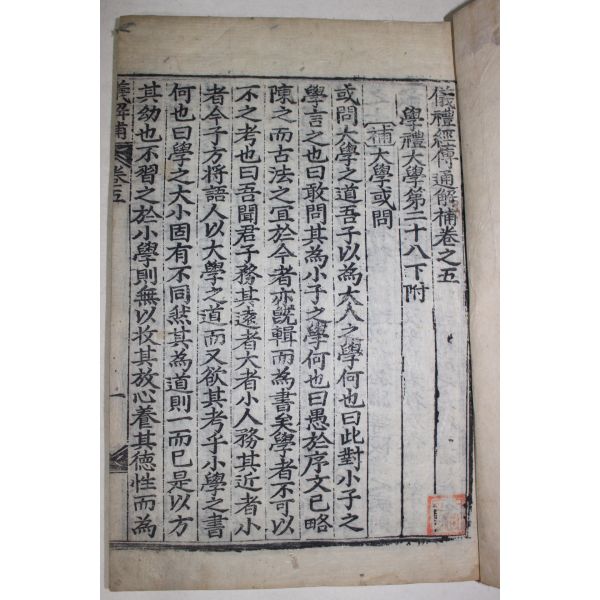 儀禮經傳通解補卷之五
學禮大學第二十八下附
補大學或問
或問大學之道吾子以為大人之學何也曰此對小子之
學言之也曰敢問其為小子之學何也曰愚於序文已略
陳之而古法之宜於今者亦旣輯而為書矣學者不可以
不之考也曰吾聞君子務其遠者大者小人務其近者小
者今子方將語人以大學之道而又欲其考乎小學之書
何也曰學之大小固有不同然其為道則一而已是以方
其幼也不習之於小學則無以收其放心養其德性而為
儀解補 卷五 一